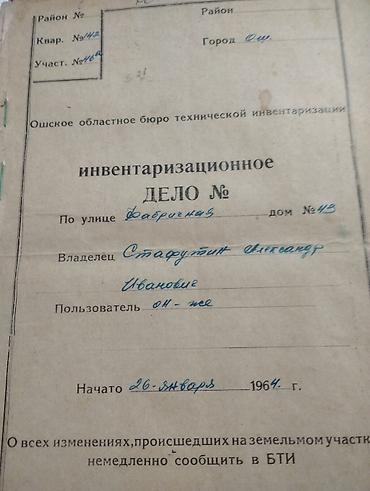 Район №
Район
Кварт. № 142
Город Ош.
Участ. № 46а
Ошское областное бюро технической инвентаризации
инвентаризационное
ДЕЛО №
По улице Фабричная дом № 49
Владелец Стафутин Александр
Иванович
Пользователь он-же
Начато 26-января 1964. г.
О всех изменениях, происшедших на земельном участк
немедленно сообщить в БТИ